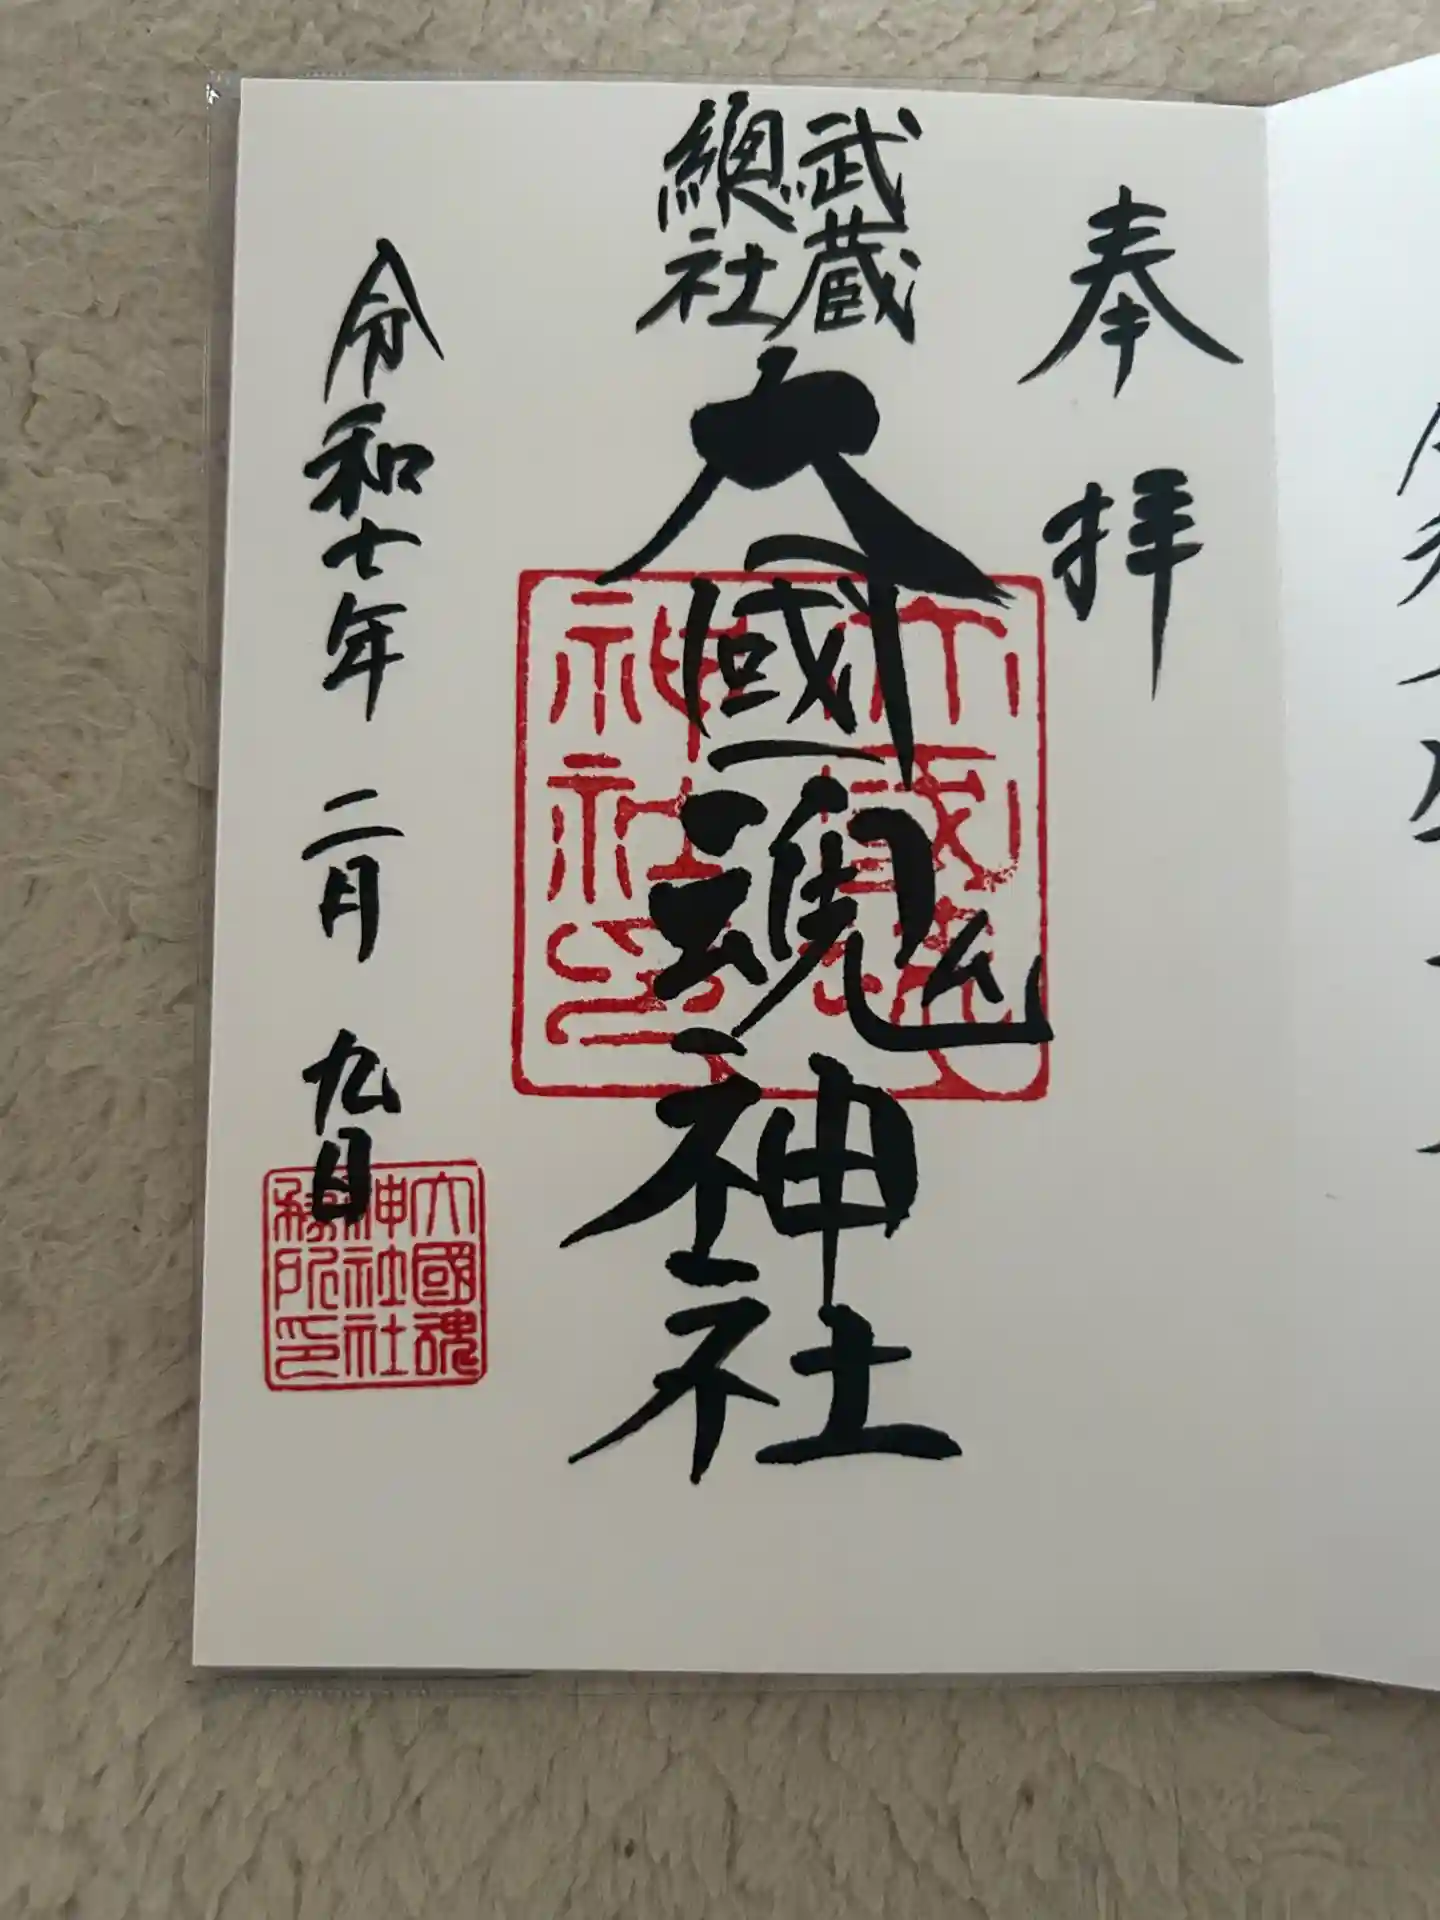 奉拝
武蔵
總社
大國魂神社
令和七年 二月 九日
大國魂
神社印
大國魂
神社社
務所印